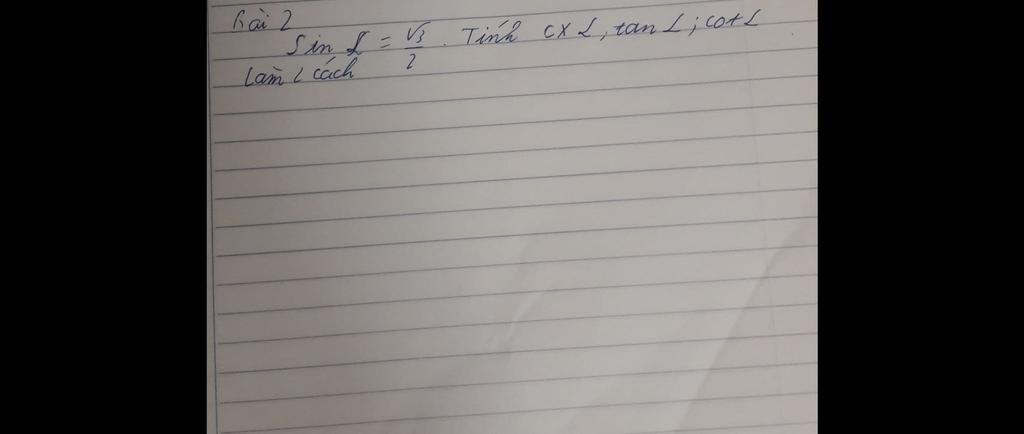 Bài 2
Sin α = √3/2 . Tính cos α, tan α; cot α
Làm 2 cách